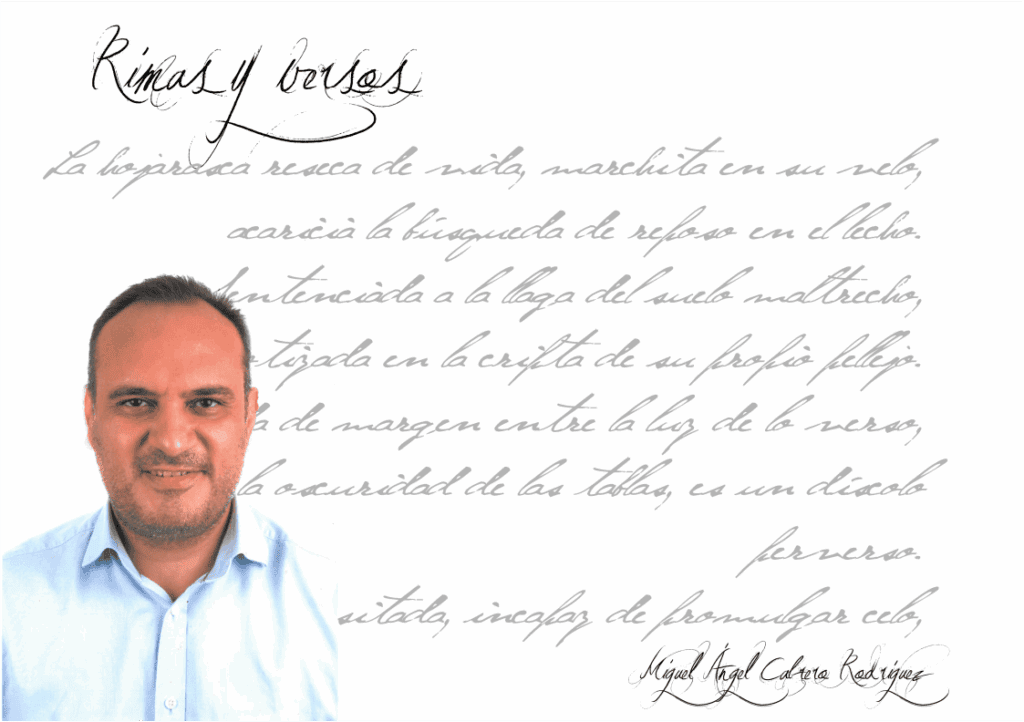 Rimas y versos
La hojarasca reseca de vida, marchita en su velo,
acaricia la búsqueda de reposo en el lecho.
Sentenciada a la llaga del suelo maltrecho,
tizada en la cripta de su propio pellejo.
de margen entre la luz de lo verso,
la oscuridad de las tablas, es un díscolo
perverso.
sitada, incapaz de promulgar celo,
Miguel Ángel Cabrero Rodríguez